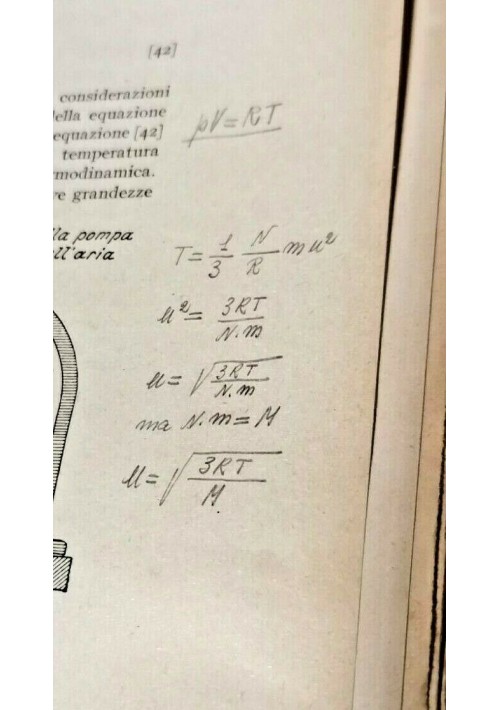 [42]
considerazioni
ella equazione
equazione [42]
temperatura
modinamica.
e grandezze
pV = RT
la pompa
ll'aria
T = 1/3 N/R m u²
u² = 3RT/N.m
u = √(3RT/N.m)
ma N.m = M
u = √(3RT/M)